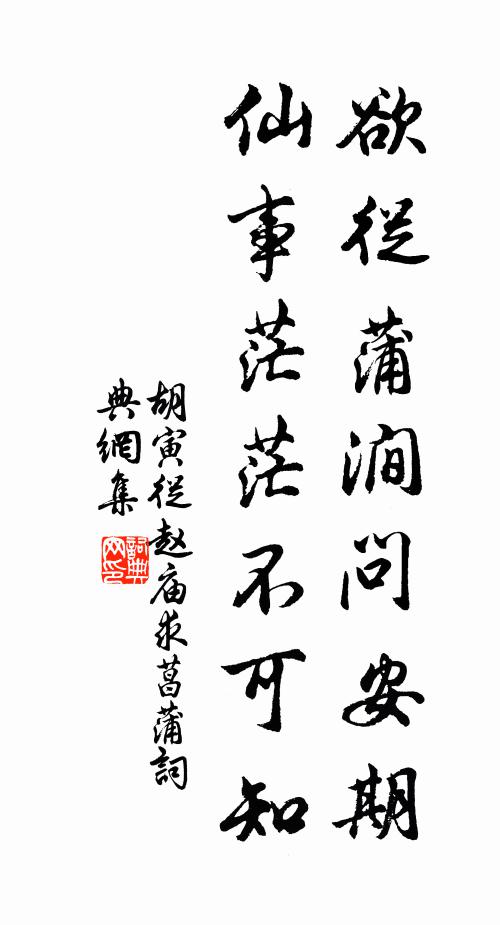 欲從蒲澗問安期
仙事茫茫不可知
胡寅從赵庙求菖蒲詞
典網集
詞典
网印